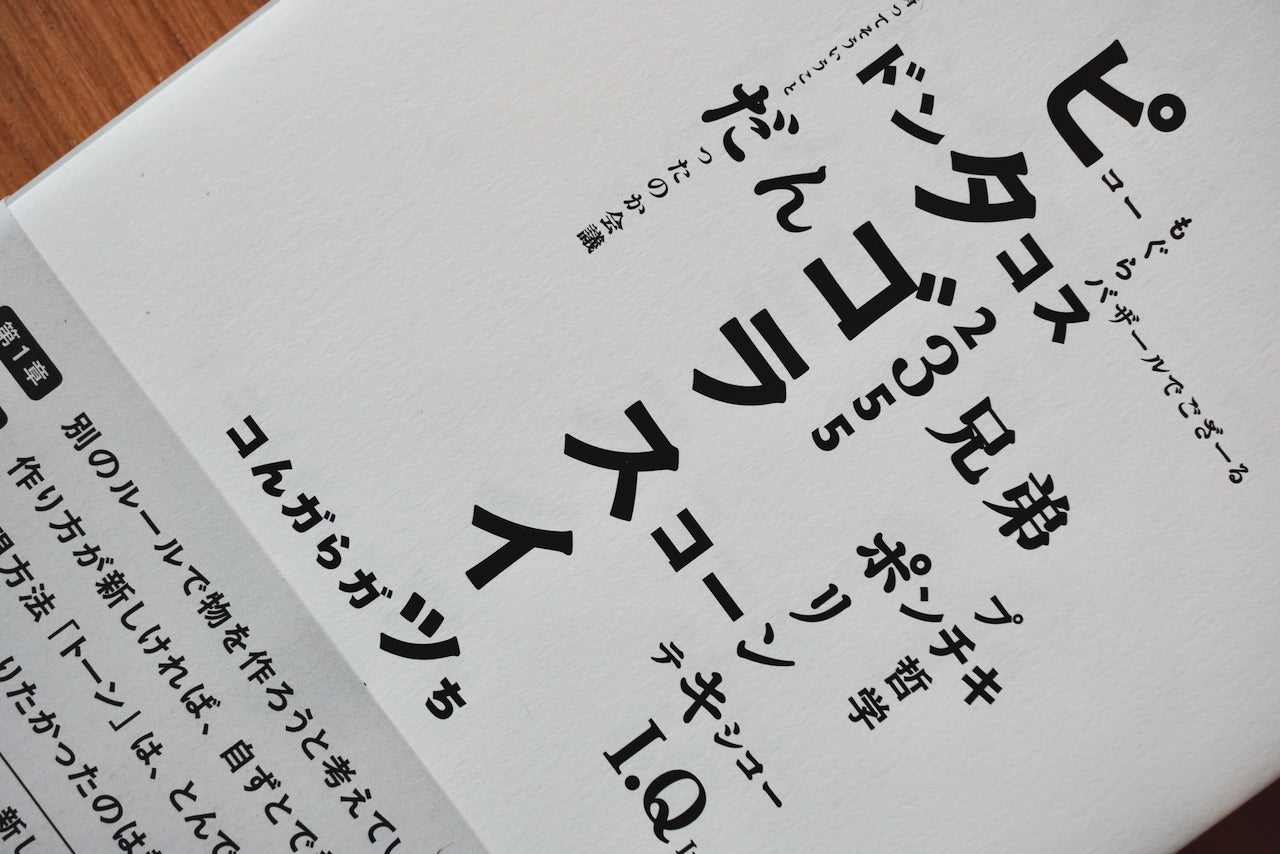 ピコー
もぐらバザールでござーる
ドンタコス
ってそういうこと
だんゴ3兄弟
ったのか会議
2355
ラ
スコーン
イ
ポンチキ
リ
プ
哲学
テキシコー
I.Q
コんガらガツち
第1章
別のルールで物を作ろうと考えてい
作り方が新しければ、自ずとで
方法「トーン」は、とんで
りたかったのは
新し